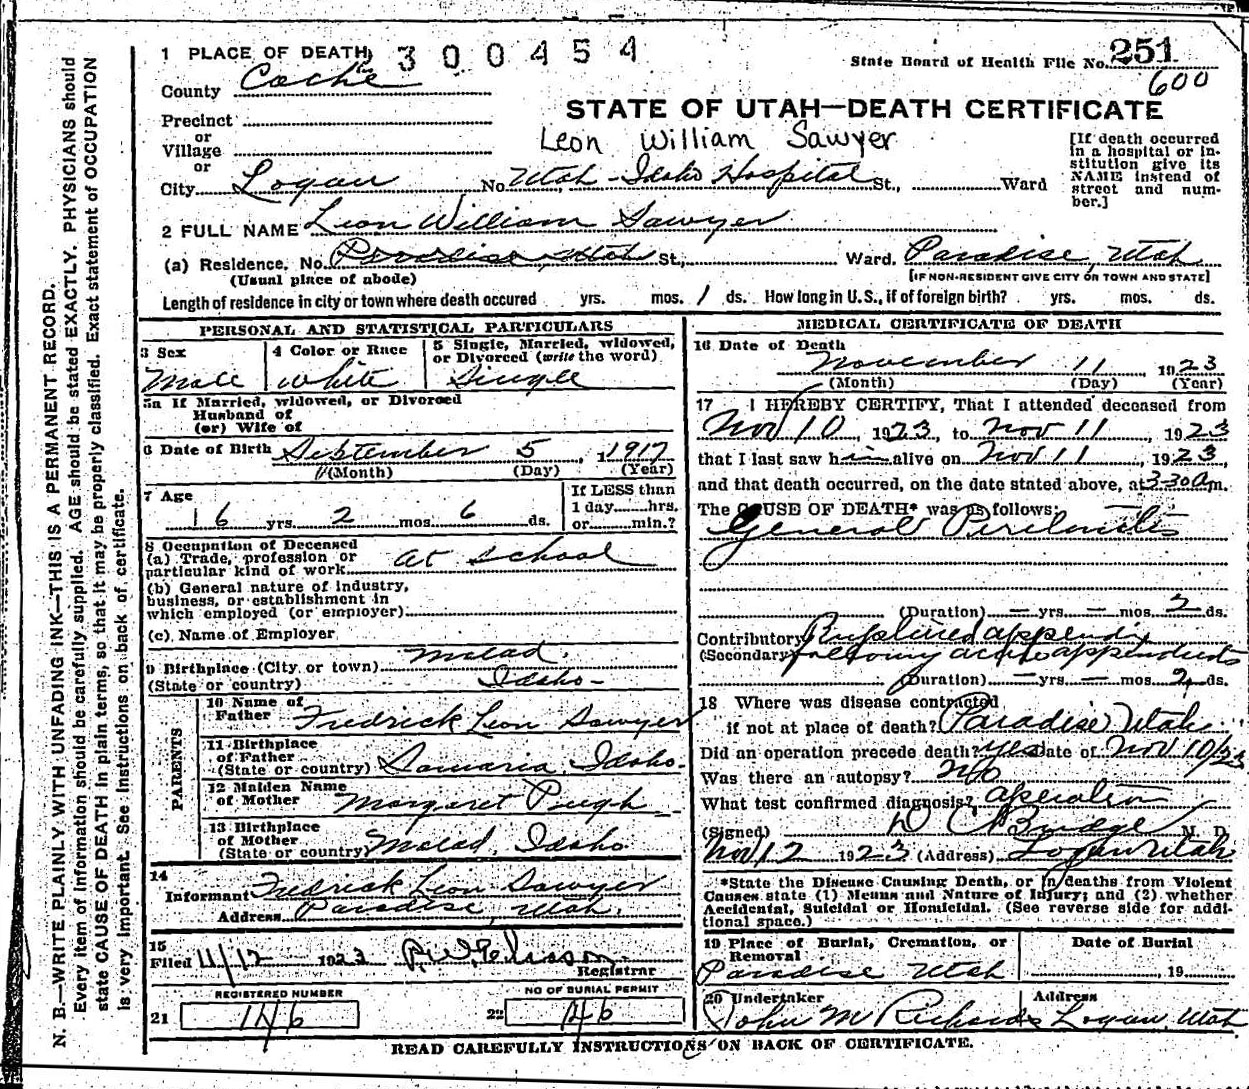 1 PLACE OF DEATH 300454
State Board of Health File No. 251
600
County Cache
STATE OF UTAH—DEATH CERTIFICATE
Precinct
or
Village
or
Leon William Sawyer
[If death occurred in a hospital or institution give its NAME instead of street and number.]
City Logan No Utah-Idaho Hospital St., Ward
2 FULL NAME Leon William Sawyer
(a) Residence, No. Paradise, Utah St., Ward. Paradise, Utah
(Usual place of abode) [IF NON-RESIDENT GIVE CITY OR TOWN AND STATE]
Length of residence in city or town where death occured yrs. mos. 1 ds. How long in U.S., if of foreign birth? yrs. mos. ds.
PERSONAL AND STATISTICAL PARTICULARS
3 Sex Male
4 Color or Race white
5 Single, Married, widowed, or Divorced (write the word) Single
5a If Married, widowed, or Divorced
Husband of
(or) Wife of
6 Date of Birth September 5, 1917
(Month) (Day) (Year)
7 Age 16 yrs. 2 mos. 6 ds.
If LESS than
1 day hrs.
or min.?
8 Occupation of Deceased
(a) Trade, profession or
particular kind of work at school
(b) General nature of industry,
business, or establishment in
which employed (or employer)
(c) Name of Employer
9 Birthplace (City or town) Malad.
(State or country) Idaho-
PARENTS
10 Name of
Father Fredrick Leon Sawyer
11 Birthplace
of Father
(State or country) Samaria, Idaho.
12 Maiden Name
of Mother Margaret Pugh
13 Birthplace
of Mother
(State or country) Malad, Idaho
14
Informant Fredrick Leon Sawyer
Address Paradise, Utah.
15
Filed 11/12 1923
Registrar
REGISTERED NUMBER
21 146
NO OF BURIAL PERMIT
22 146
MEDICAL CERTIFICATE OF DEATH
16 Date of Death
November 11, 1923
(Month) (Day) (Year)
17 I HEREBY CERTIFY, That I attended deceased from
Nov 10, 1923, to Nov 11, 1923
that I last saw him alive on Nov 11, 1923,
and that death occurred, on the date stated above, at 3 30 a m.
The CAUSE OF DEATH* was as follows:
General Peritonitis
(Duration) — yrs. — mos. 2 ds.
Contributory Ruptured appendix
(Secondary) following acute appendicitis
(Duration) — yrs. — mos. 2 ds.
18 Where was disease contracted
if not at place of death? Paradise, Utah
Did an operation precede death? yes date of Nov 10/23
Was there an autopsy? No
What test confirmed diagnosis? operation
(Signed) D C Budge M. D.
Nov 12 1923 (Address) Logan Utah
*State the Disease Causing Death, or in deaths from Violent
Causes state (1) Means and Nature of Injury; and (2) whether
Accidental, Suicidal or Homicidal. (See reverse side for addi-
tional space.)
19 Place of Burial, Cremation, or
Removal
Paradise Utah
Date of Burial
, 19
20 Undertaker Address
John M Richards Logan, Utah
READ CAREFULLY INSTRUCTIONS ON BACK OF CERTIFICATE.
N. B.—WRITE PLAINLY WITH UNFADING INK—THIS IS A PERMANENT RECORD.
Every item of information should be carefully supplied. AGE should be stated EXACTLY. PHYSICIANS should
state CAUSE OF DEATH in plain terms, so that it may be properly classified. Exact statement of OCCUPATION
is very important. See instructions on back of certificate.